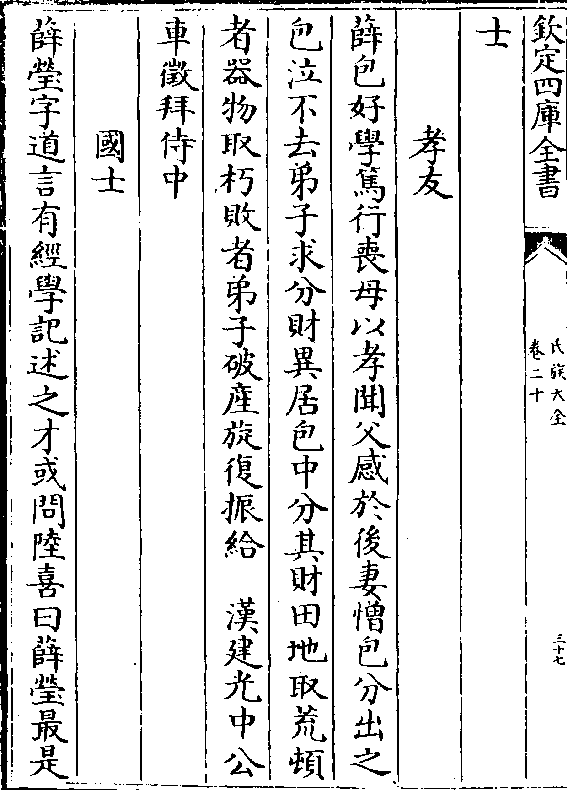 欽定四庫全書
氏族大全
卷二十
三十七
士
孝友
薛包好學篤行喪母以孝聞父感於後妻憎包分出之
包泣不去弟子求分財異居包中分其財田地取荒頓
者器物取朽敗者弟子破產旋復振給　漢建光中公
車徵拜侍中
國士
薛瑩字道言有經學記述之才或問陸喜曰薛瑩最是